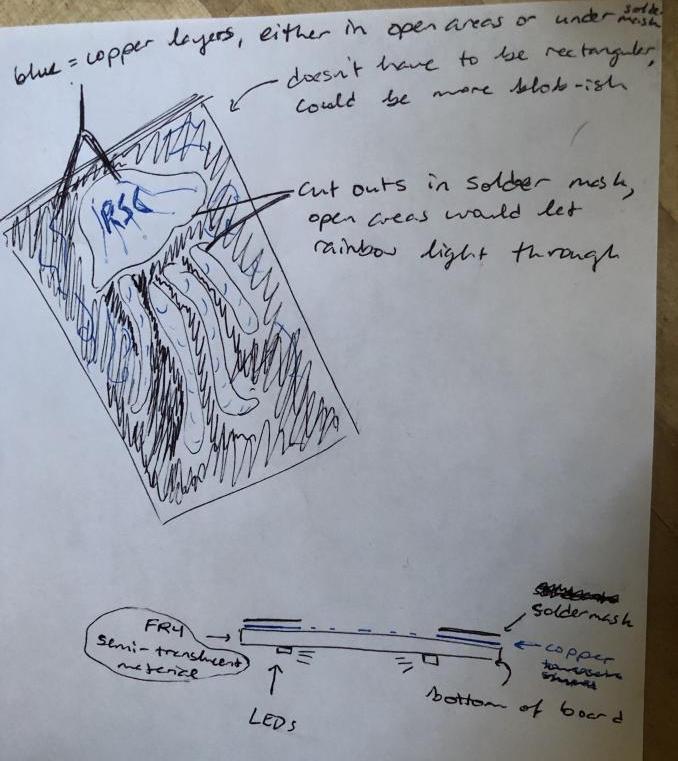 blue = copper layers, either in open areas or under solder mask
doesn't have to be rectangular,
could be more blob-ish
RSC
cut outs in solder mask,
open areas would let
rainbow light through
FR4
semi-translucent
material
soldermask
copper
LEDs
bottom of board